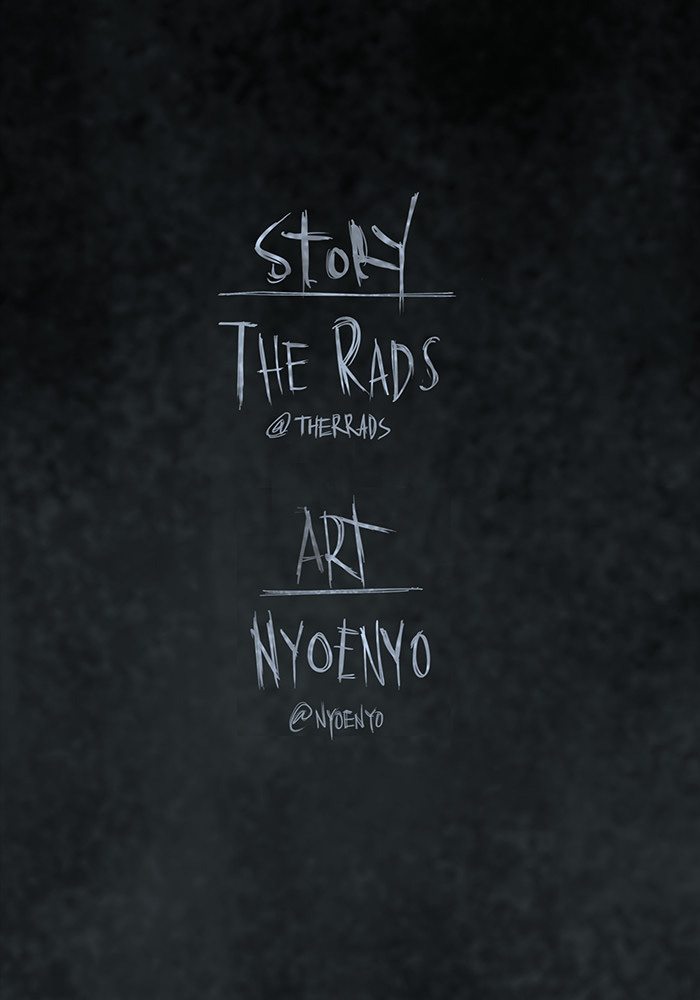 StoRY
THE RADS
@THERRADS
ART
NYOENYO
@NYOENYO